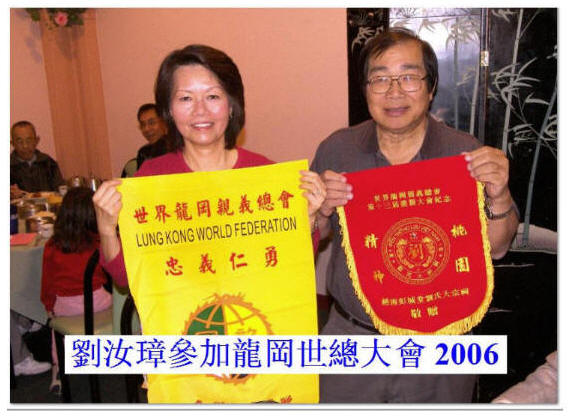 世界龍岡親義總會
LUNG KONG WORLD FEDERATION
忠義仁勇
世界龍岡親義總會
第十三屆懇親大會紀念
桃園
精神
劉
彭城堂劉氏大宗祠
敬贈
劉汝璋參加龍岡世總大會 2006